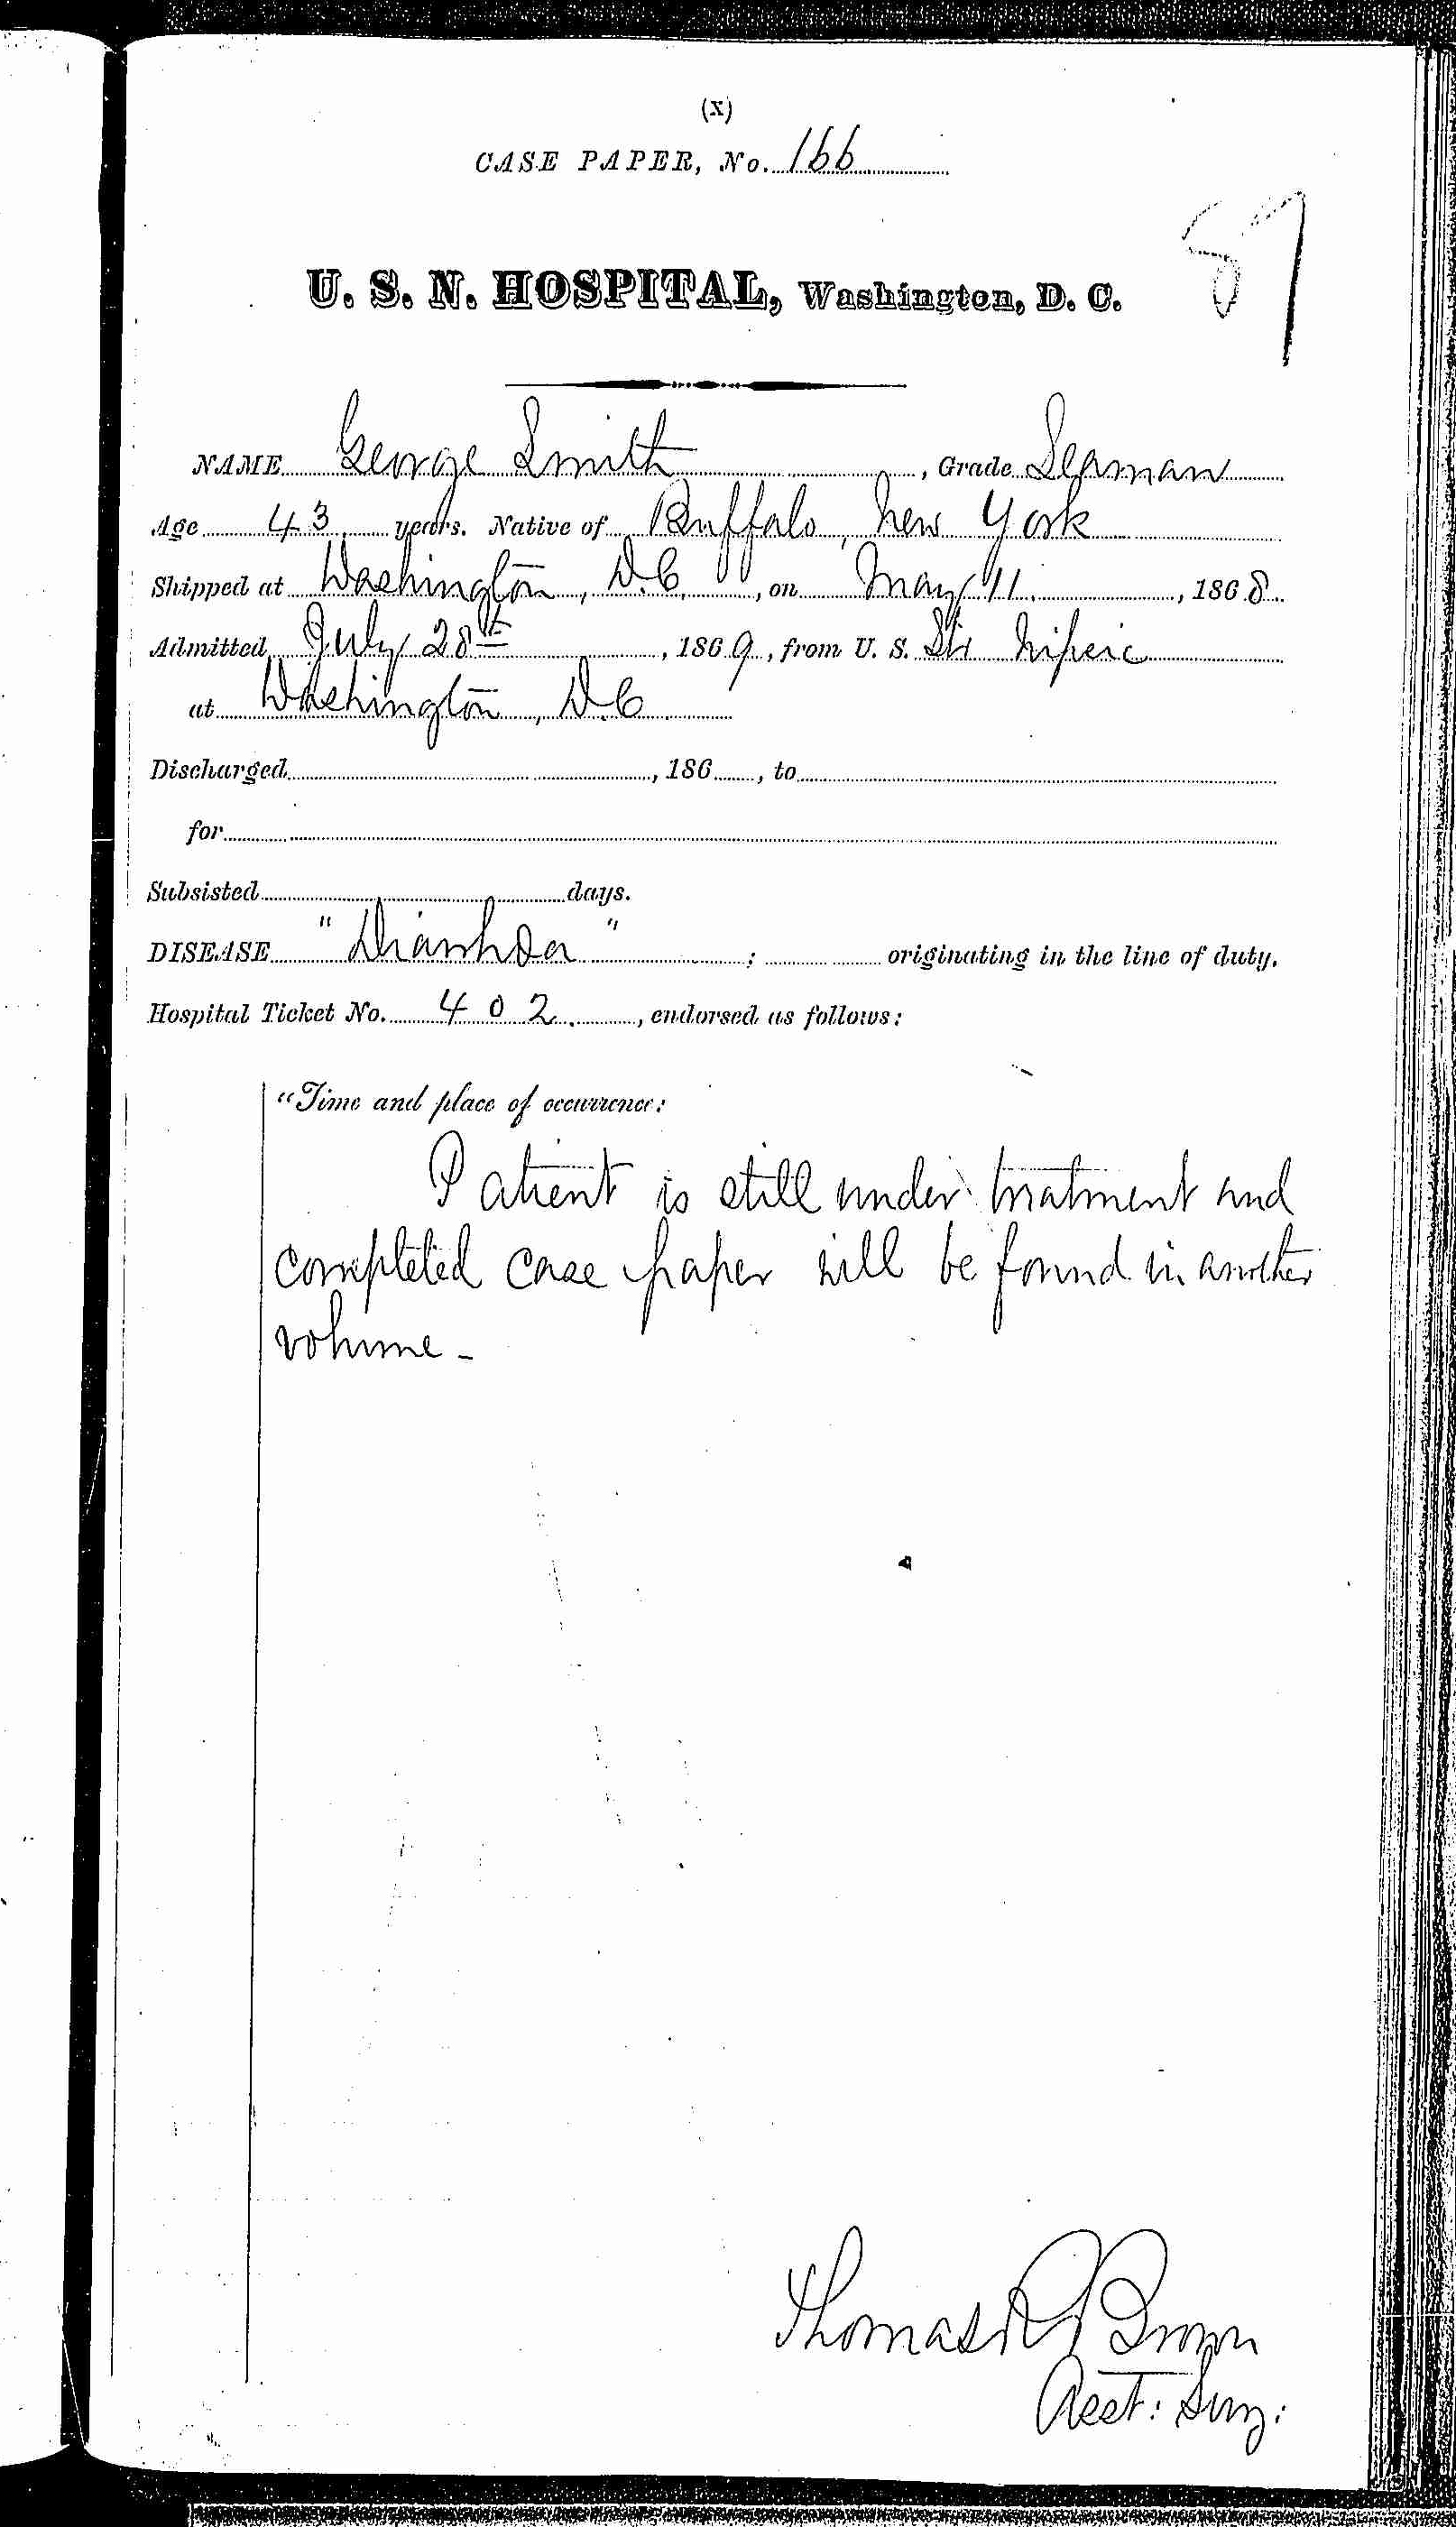 (X)
CASE PAPER, No. 166
87
U. S. N. HOSPITAL, Washington, D. C.
NAME George Smith, Grade Seaman
Age 43 years. Native of Buffalo, New York
Shipped at Washington, D.C., on May 11., 1868
Admitted July 28th, 1869, from U. S. Str Nipsic
at Washington, D.C.
Discharged, 186, to
for
Subsisted days.
DISEASE "Diarrhœa"; originating in the line of duty.
Hospital Ticket No. 402., endorsed as follows:
"Time and place of occurrence:
Patient is still under treatment and
completed case paper will be found in another
volume -
Thomas R Brown
Asst: Surg: